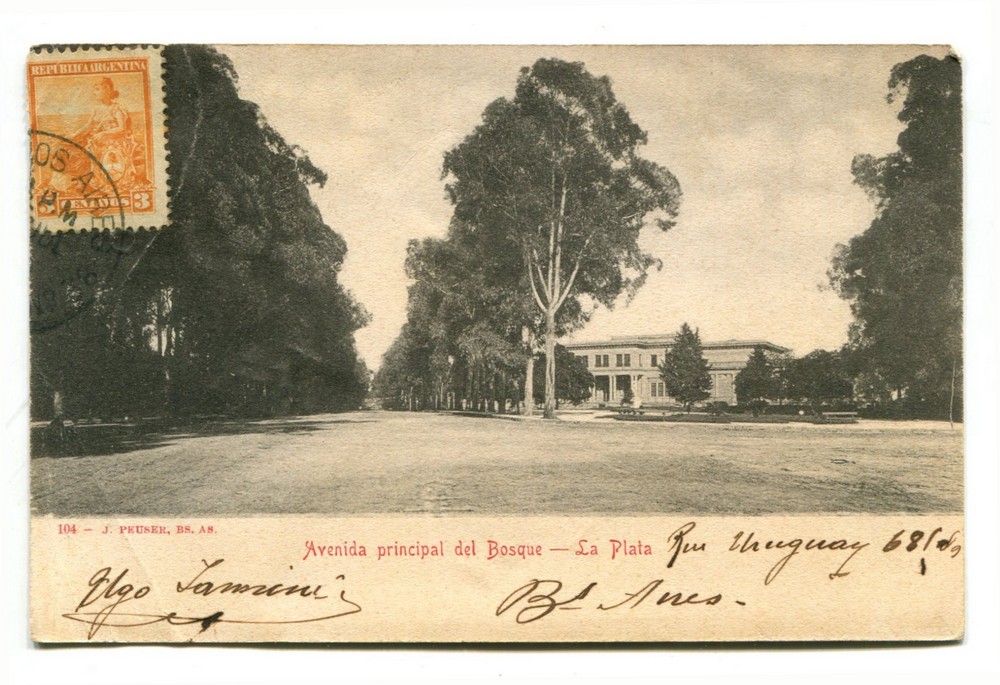 REPUBLICA ARGENTINA
CENTAVOS 3
104 — J. PEUSER, BS. AS.
Avenida principal del Bosque — La Plata
Rue Uruguay
Ugo
Bs Aires.